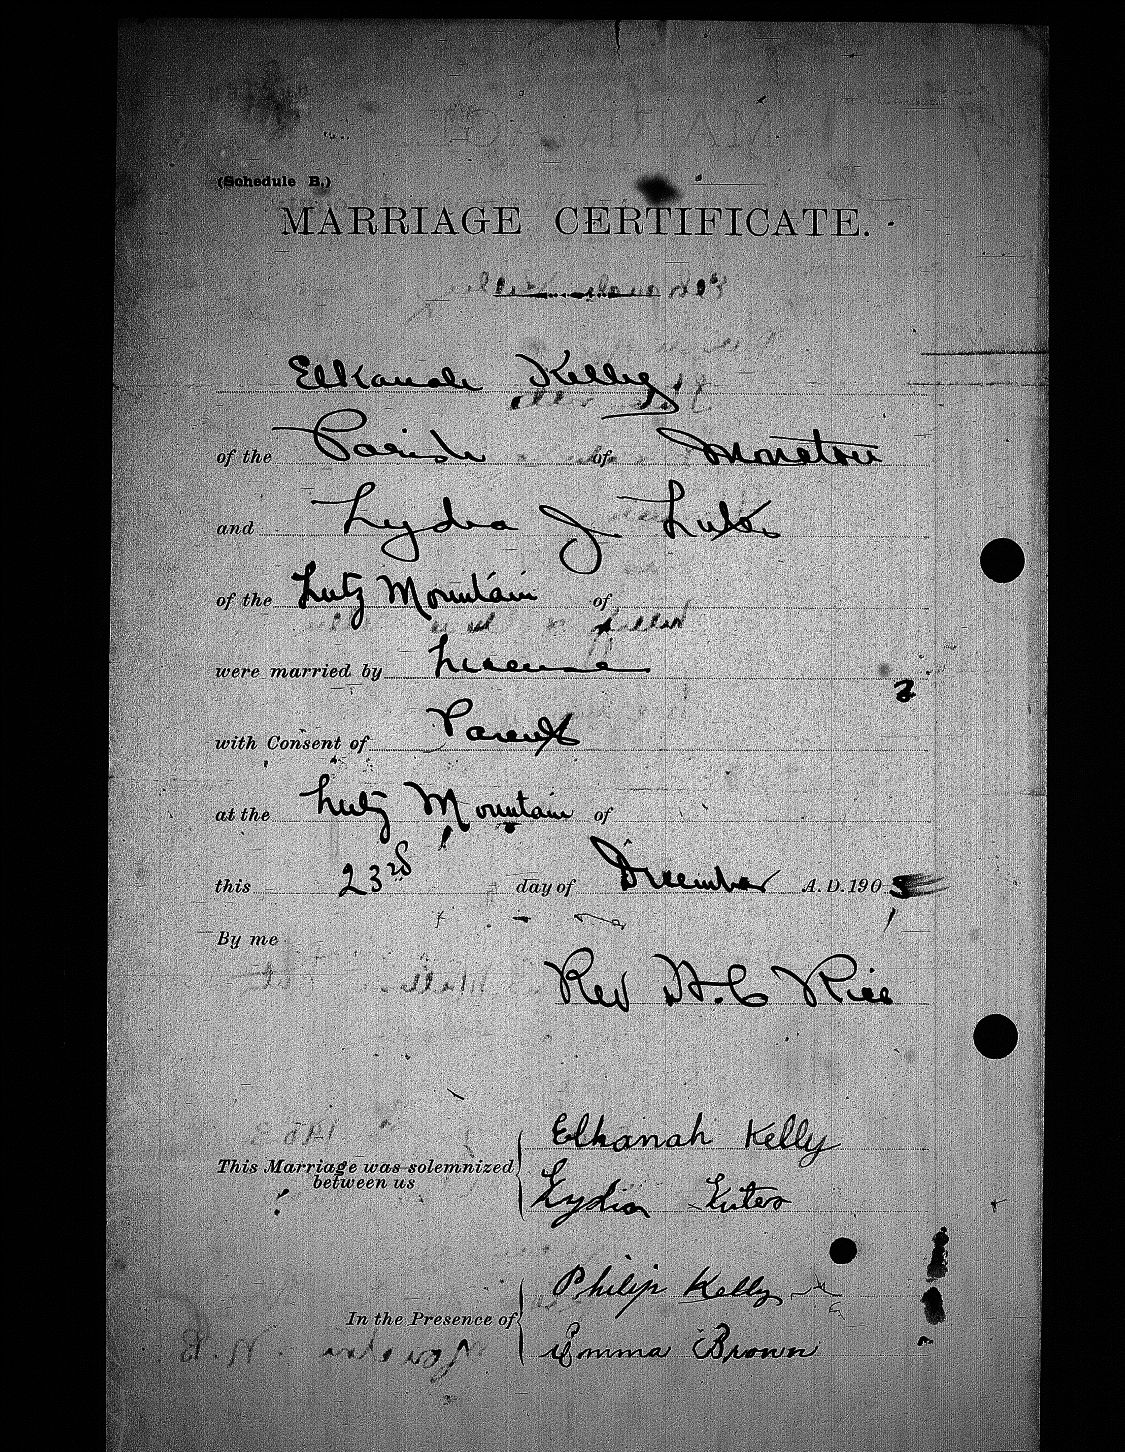 (Schedule B.)
MARRIAGE CERTIFICATE.
Elkanah Kelly
of the Parish of Moncton
and Lydia J
of the Lutz Mountain of
were married by License
with Consent of Parents
at the Lutz Mountain of
this 23rd day of December A.D. 190
By me
Rev Rice
Elkanah Kelly
This Marriage was solemnized
between us
Lydia
Philip Kelly
In the Presence of
Emma Brown